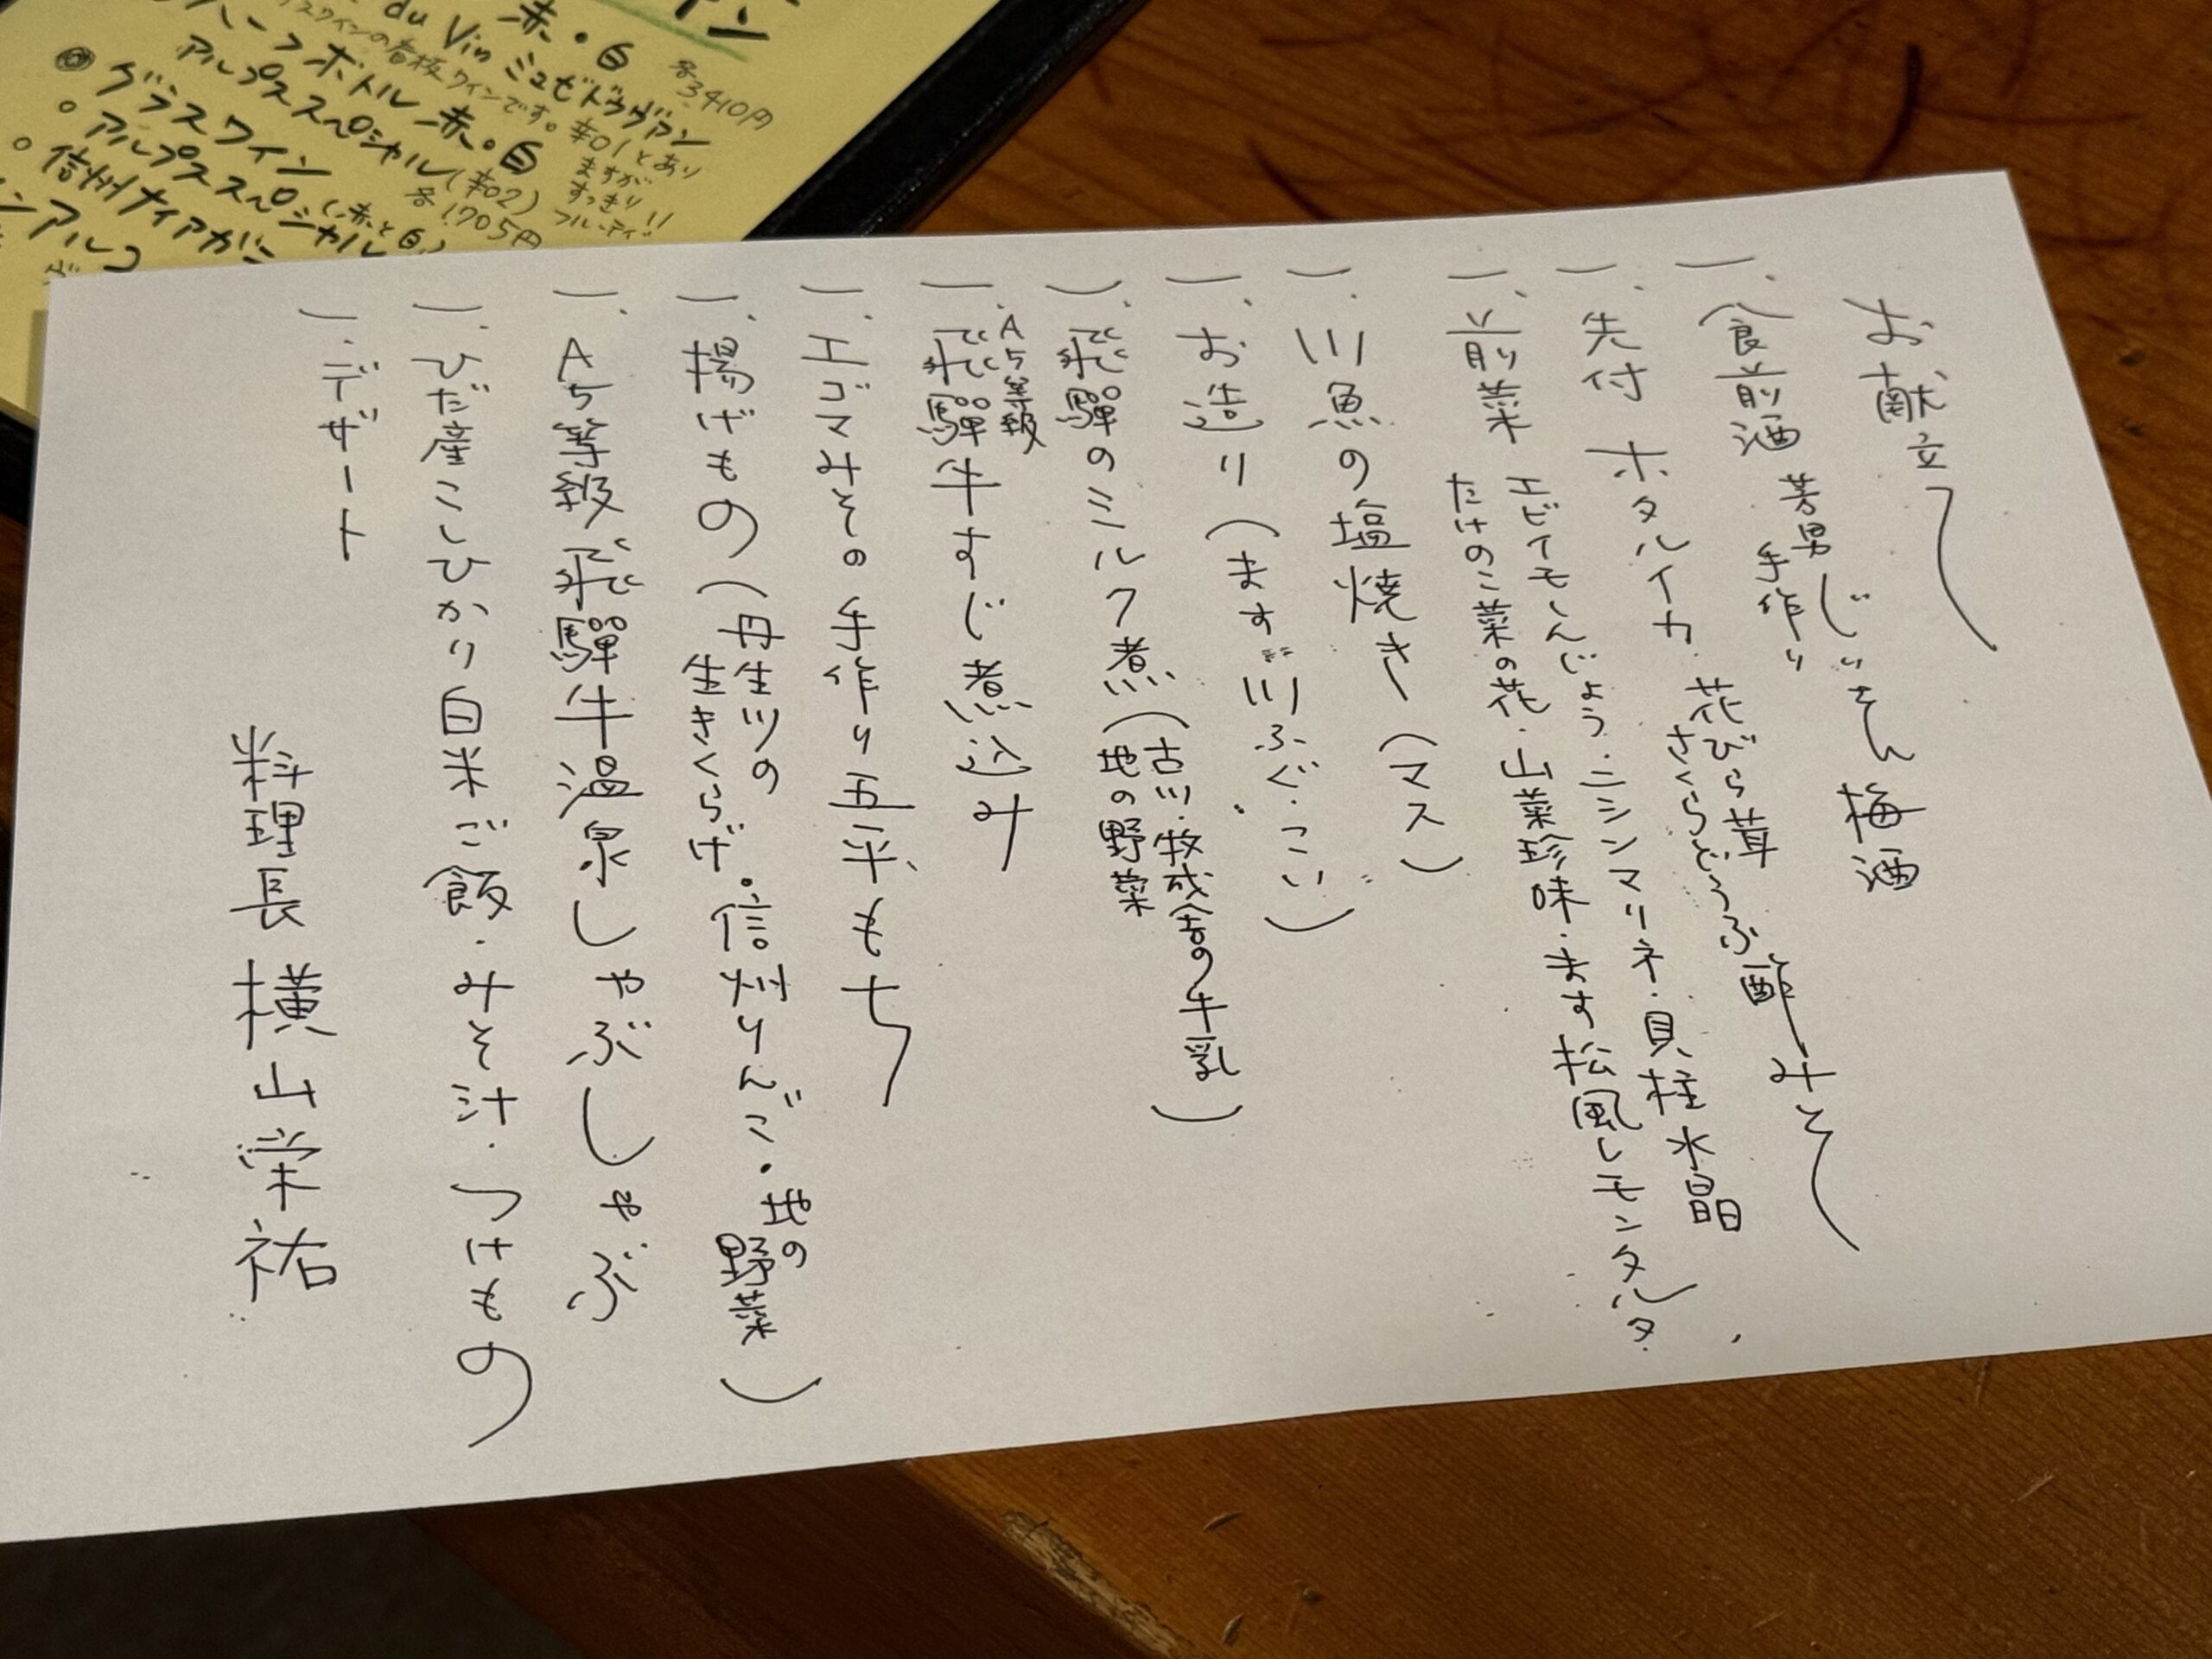 お献立
一、食前酒 芳男じいさん手作り梅酒
一、先付 ホタルイカ 花びら茸 さくらどうふ 酢みそ
一、前菜 エビイモしんじょう・ニシンマリネ・貝柱水晶、
たけのこ菜の花・山菜珍味・ます松風レモンタルタ
一、川魚の塩焼き(マス)
一、お造り(ます・川ふぐ・こい)
一、飛騨のミルク煮(古川・牧成舎の牛乳
地の野菜)
一、A5等級飛騨牛すじ煮込み
一、エゴマみその手作り五平もち
一、揚げもの(丹生川の
生きくらげ・信州りんご・地の野菜)
一、A5等級飛騨牛温泉しゃぶしゃぶ
一、ひだ産こしひかり白米ご飯・みそ汁・つけもの
一、デザート
料理長 横山栄祐
赤・白 各3410円
du Vin ミュゼドゥヴァン
ワインの看板ワインです。辛01とあり
ますが
すっきり!!
フルーティ
ハーフボトル 赤・白
アルプススペシャル(辛02)
各1705円
◎グラスワイン
○アルプススペシャル(赤と白)
○信州ナイアガラ
ンアルコ